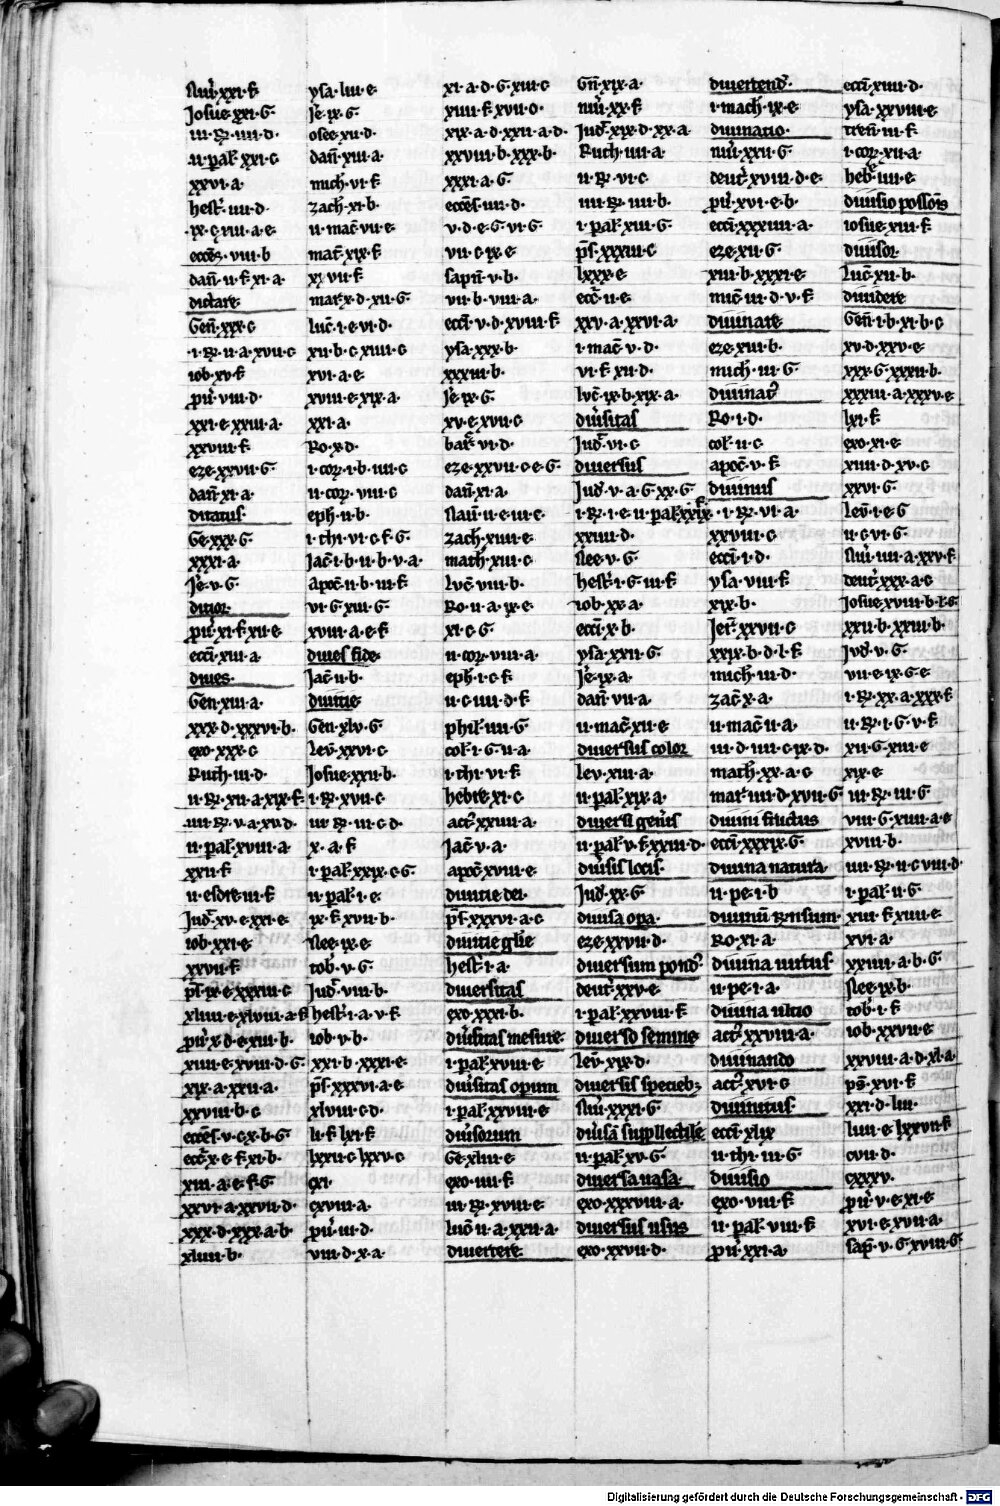 Nuͫ·xxi·f·
Josue·xxi·G·
iii·R·iiii·d·
ii·paɫ·xxi·c·
xxvi·a·
hest·iiii·d·
ix·c·xiii·a·e·
eccēs·viii·b
dañ·ii·f·xi·a·
dictare
Geñ·xxx·c
i·R·ii·a·xvii·c
iob·xv·f·
pͬu·viii·d·
xxi·e·xxiii·a·
xxviii·f·
eze·xxvii·G·
dañ·xi·a·
ditatus·
Ge·xxx·G·
xxxi·a·
Je·v·G·
ditior·
pͬu·xi·f·xii·e
eccī·xiii·a·
diues·
Gen·xiii·a·
xxx·d·xxxvi·b·
exo·xxx·c
Ruth·iii·d·
ii·R·xii·a·xix·f·
iiii·R·v·a·xv·d·
ii·paɫ·xviii·a·
xxii·f·
ii·esdre·iii·f·
Jud·xv·e·xxi·e·
iob·xxi·e·
xxvii·f·
p̄s·ix·e·xxxiii·c
xliiii·e·xlviii·a·f
pͬu·x·d·e·xiii·b·
xiiii·e·xviii·d·G·
xix·a·xxii·a·
xxviii·b·c
eccēs·v·c·x·b·G·
ecc·x·e·f·xi·b·
xiii·a·e·f·G·
xxvi·a·xxvii·d·
xxx·d·xxx·a·b·
xliiii·b·
ysa·liii·e·
Je·ix·G·
osee·xii·d·
dañ·xiii·a·
mich·vi·f·
zach·xi·b·
ii·mac·vii·e·
mat·xix·f·
xxvii·f·
mar·x·d·xii·G·
luc·i·e·vi·d·
xii·b·c·xiiii·c
xvi·a·e·
xviii·e·xix·a·
xxi·a·
Ro·x·d·
i·cor·i·b·iiii·c
ii·cor·viii·c
eph·ii·b·
i·thi·vi·c·f·G·
Jac·i·b·ii·b·v·a·
apoc·ii·b·iii·f·
vi·G·xiii·G·
xviii·a·e·f·
diues fide·
Jac·ii·b·
diuitie
Gen·xlv·G·
Lev·xxvi·c
Josue·xxii·b·
i·R·xvii·c
iii·R·iii·c·d·
x·a·f·
i·paɫ·xxix·c·G·
ii·paɫ·i·e·
ix·f·xvii·b·
Nee·ix·e·
tob·v·G·
Jud·viii·b·
hest·i·a·v·f·
iob·v·b·
xxi·b·xxxi·e·
p̄s·xxxvi·a·e·
xlviii·c·d·
li·f·lxi·f·
lxxii·c·lxxv·c
cxi·
cxviii·a·
pͬu·iii·d·
viii·d·x·a·
xi·a·d·G·xiii·c
xiiii·f·xvii·o·
xix·a·d·xxii·a·d·
xxviii·b·xxx·b·
xxxi·a·G·
eccēs·iiii·d·
v·d·e·G·vi·G·
vii·c·ix·e·
sapñ·v·b·
vii·b·viii·a·
eccī·v·d·xviii·f·
ysa·xxx·b·
xxxiii·b·
Je·ix·G·
xv·e·xvii·c
bar·vi·d·
eze·xxvii·c·e·G·
dañ·xi·a·
Nau·ii·e·iii·e·
zach·xiiii·e·
math·xiii·c
Luc·viii·b·
Ro·ii·a·ix·e·
xi·c·G·
ii·cor·viii·a·
eph·i·c·f·
ii·c·iii·d·f·
phiɫ·iiii·G·
coɫ·i·G·ii·a·
i·thi·vi·f·
hebre·xi·c·
act·xxiiii·a·
Jac·v·a·
apoc·xviii·e·
diuitie dei·
p̄s·xxxvi·a·c
diuitie gl̄ie
hest·i·a·
diuersitas
exo·xxxi·b·
diu̾sitas mesure·
i·paɫ·xxviii·e·
diu̾sitas opum
i·paɫ·xxviii·e
diu̾sorum
Ge·xliii·e
exo·iiii·f·
iii·R·xviii·e·
luc·ii·a·xxii·a·
diuertere·
Gñ·xix·a·
nuͫ·xx·f·
Jud·xix·d·xx·a
Ruth·iiii·a·
ii·R·vi·c
iiii·R·iiii·b·
i·paɫ·xiii·G·
p̄s·xxxiii·c
lxxx·e·
ecc·ii·e·
xxv·a·xxvi·a·
i·mac·v·d·
vi·f·xii·d·
Luc·ix·b·xix·a·
diu̾sitas
Jud·vi·c
diuersus
Jud·v·a·G·xx·G·
i·R·i·e·ii·paɫ·xxix·f
xxiiii·d·
Nee·v·G·
hest·i·G·iii·f·
iob·xx·a·
eccī·x·b·
ysa·xxii·G·
Je·ix·a·
dañ·vii·a·
ii·mac·xii·e
diuersus color
Lev·xiii·a·
ii·paɫ·xix·a·
diuersi gen̄is
ii·paɫ·v·f·xxiii·d·
diu̾sis locis·
Jud·xx·G·
diuisa opa·
eze·xxvii·d·
diuersum pond·
deut·xxv·e
i·paɫ·xxviii·f·
diuerso semine
Lev·xix·d·
diuersis specieb;
Nuͫ·xxxi·G·
diu̾sā suppllectilē
ii·paɫ·xv·G·
diuersa uasa·
exo·xxxviii·a·
diuersus usus
exo·xxvii·d·
diuertend·
i·mach·ix·e·
diuinatio·
nuͫ·xxii·G·
deut·xviii·d·e·
pͬu·xvi·e·b·
eccī·xxxiiii·a·
eze·xii·G·
xiii·b·xxxi·e·
mic·iii·d·v·f·
diuinare
eze·xiii·b·
mich·iii·G·
diuinat
Ro·i·d·
coɫ·ii·c
apoc·v·f·
diuinus
i·R·vi·a·
xxviii·c
eccī·i·d·
ysa·viii·f·
xix·b·
Jer·xxvii·c
xxix·b·d·l·f·
mich·iii·d·
zac·x·a·
ii·mac·ii·a·
iii·d·iiii·c·ix·d·
math·xx·a·c
mar·iiii·d·xvii·G
diuini fructus
eccī·xxxix·G·
diuina natura·
ii·pe·i·b
diuinū Rnsum·
Ro·xi·a·
diuina uirtus·
ii·pe·i·a·
diuina ultio
act·xxviii·a·
diuinando
act·xvi·c
diuinitus·
eccī·xlix
ii·thi·iii·G·
diuisio
exo·viii·f·
ii·paɫ·viii·f·
pͬu·xxi·a·
eccī·xiiii·d·
ysa·xxviii·e
tren·iii·f·
i·cor·xii·a·
heb·iiii·e·
diuisio possōis
iosue·xiii·f·
diuisor
Luc·xii·b·
diuidere
Gen·i·b·xi·b·c
xv·d·xxv·e
xxx·G·xxxii·b·
xxxiii·a·xxxv·e
lxi·f·
exo·xi·e
xiiii·d·xv·c
xxvi·G·
Lev·i·e·G
ii·c·vi·G·
Nuͫ·iiii·a·xxv·f·
deut·xxx·a·c
Josue·xviii·b·f·G·
xxii·b·xxiii·b·
Jud·v·G·
vii·e·ix·G·e
i·R·xx·a·xxx·f·
ii·R·i·G·v·f·
xii·G·xiii·e
xix·e
iii·R·iii·G·
viii·G·xiiii·a·e
xviii·b·
iiii·R·ii·c·viii·d·
i·paɫ·ii·G·
xiii·f·xiiii·e
xvi·a·
xxiiii·a·b·G·
Nee·ix·b·
tob·i·f·
iob·xxvii·e
xxviii·a·d·xl·a·
ps·xvi·f·
xxi·d·liii·
liiii·e·lxxvii·f·
cvii·d·
cxxxv·
pͬu·v·e·xi·e
xvi·e·xvii·a·
sap·v·G·xviii·G
Digitalisierung gefördert durch die Deutsche Forschungsgemeinschaft · DFG